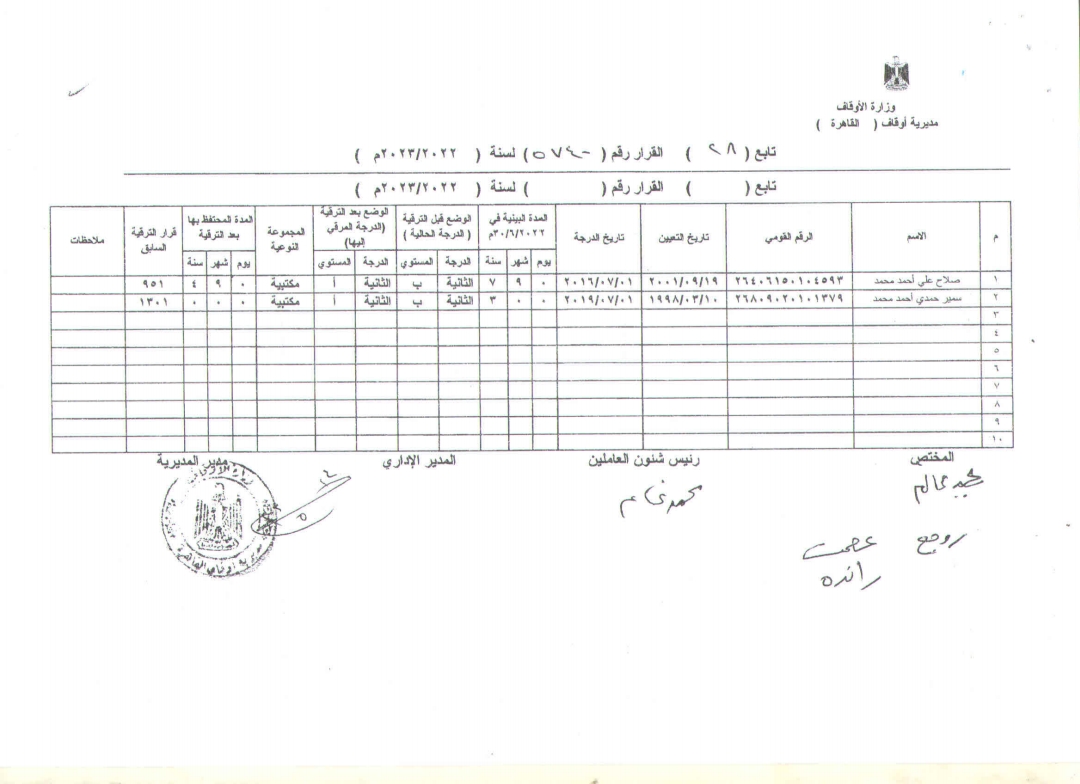 وزارة الأوقاف
مديرية أوقاف ( القاهرة )
تابع ( ٢٨ ) القرار رقم ( ٥٧٤٠ ) لسنة ( ٢٠٢٣/٢٠٢٢م )
تابع ( ) القرار رقم ( ) لسنة ( ٢٠٢٣/٢٠٢٢م )
م الاسم الرقم القومي تاريخ التعيين تاريخ الدرجة المدة البينية في ٢٠٢٢/٦/٣٠م الوضع قبل الترقية ( الدرجة الحالية ) الوضع بعد الترقية (الدرجة المرقي إليها) المجموعة النوعية المدة المحتفظ بها بعد الترقية قرار الترقية السابق ملاحظات
يوم شهر سنة الدرجة المستوي الدرجة المستوي يوم شهر سنة
١ صلاح علي أحمد محمد ٢٦٤٠٦١٥٠١٠٤٥٩٣ ٢٠٠١/٠٩/١٩ ٢٠١٦/٠٧/٠١ ٠ ٩ ٧ الثانية ب الثانية أ مكتبية ٠ ٩ ٤ ٩٥١
٢ سمير حمدي أحمد محمد ٢٦٨٠٩٠٢٠١٠١٣٧٩ ١٩٩٨/٠٣/١٠ ٢٠١٩/٠٧/٠١ ٠ ٠ ٣ الثانية ب الثانية أ مكتبية ٠ ٠ ٠ ١٣٠١
٣
٤
٥
٦
٧
٨
٩
١٠
المختص رئيس شئون العاملين المدير الإداري مدير المديرية
روجع عصمت
رانده